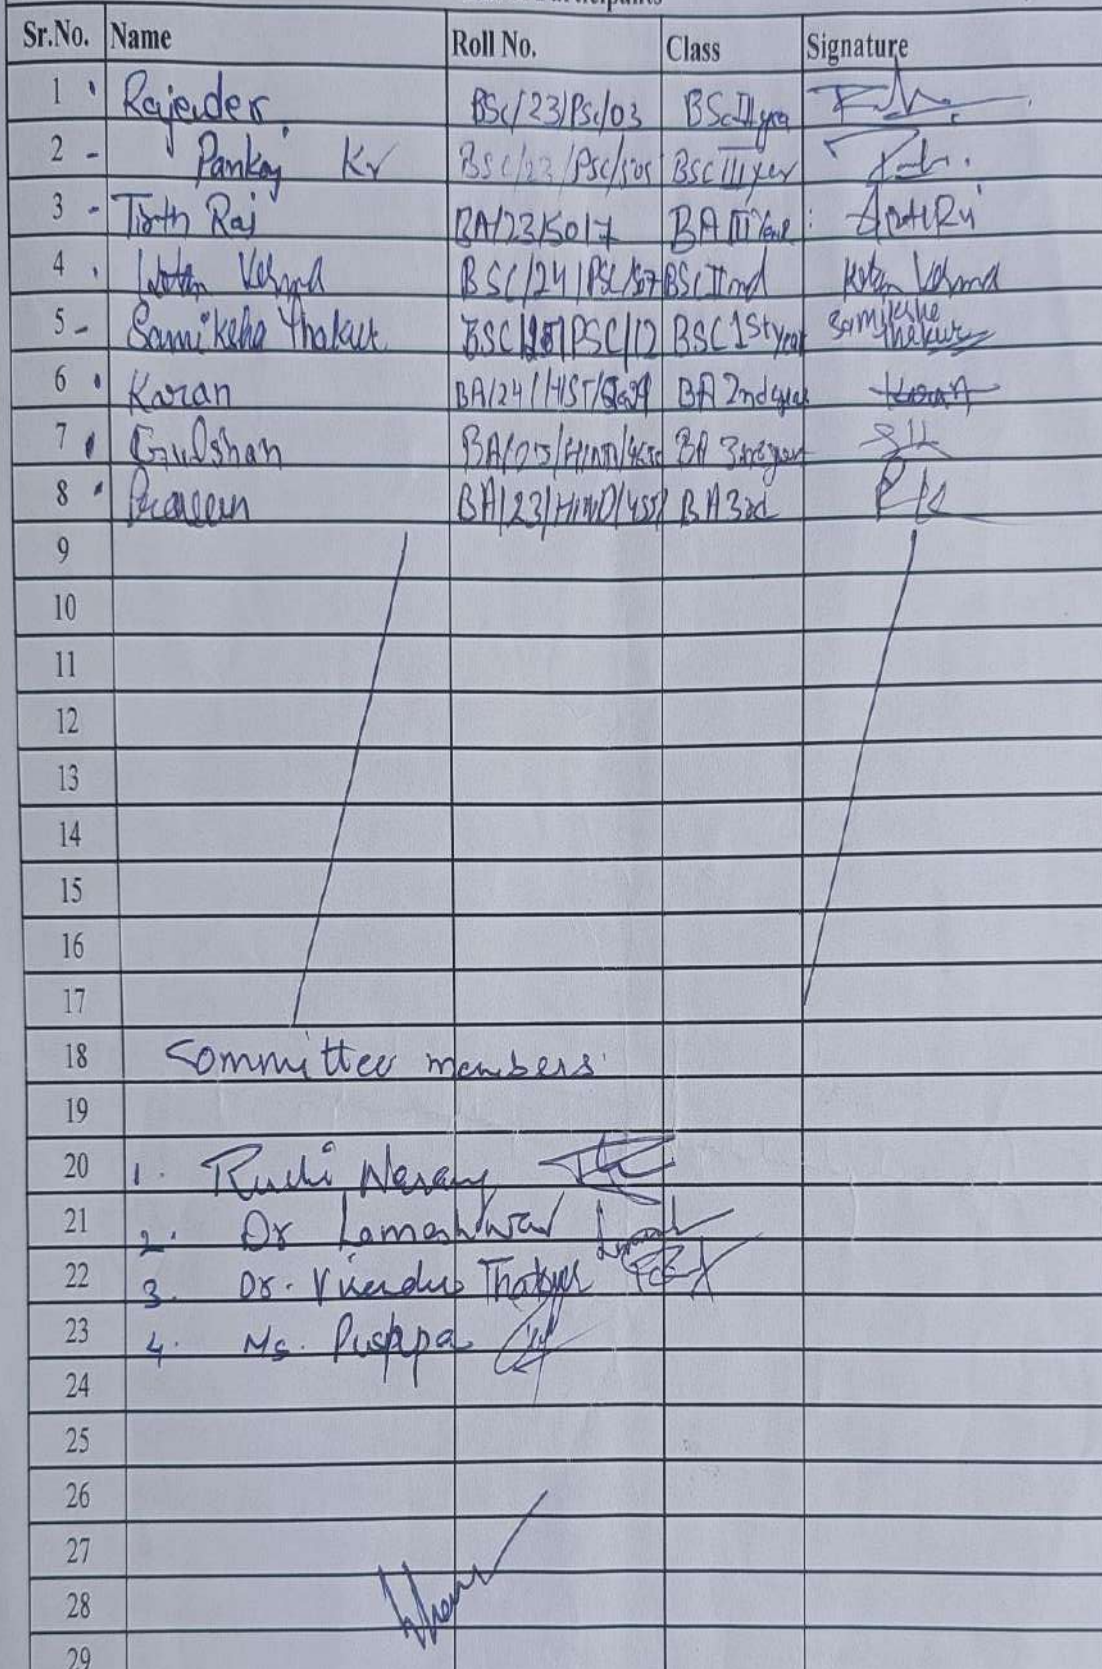 Participants
Sr.No. Name Roll No. Class Signature
1 Rajender BSc/23/PSc/03 BSc II
2 - Pankaj Kr BSC/23/PSC/ BSC III yer
3 - Tirth Raj BA/23/5017 BA III Year
4 Verma BSC/24/PSC/ BSC IInd Verma
5 - Samiksha Thakur BSC/ /PSC/12 BSC 1St year Samiksha Thakur
6 Karan BA/24/HIST/ BA 2nd year Karan
7 Gulshan BA/ BA 3rd year
8 Praveen BA/23/HIND/ BA 3rd
9
10
11
12
13
14
15
16
17
18 Committee members
19
20 1. Ruchi
21 2. Dr Lameshwar
22 3. Dr. Virender Thakur
23 4. Ms. Pushpa
24
25
26
27
28
29